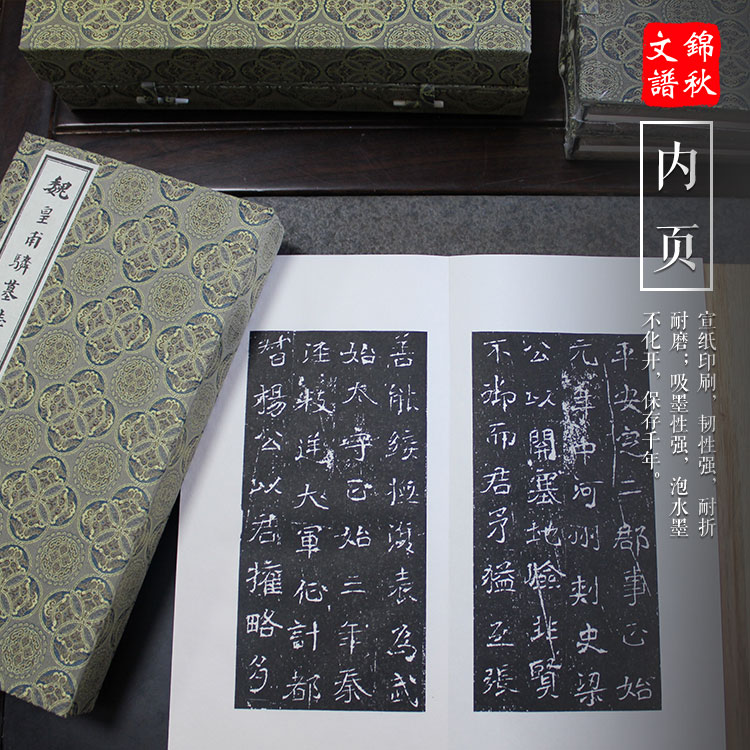 錦秋
文譜
内页
宣纸印刷，韧性强、耐折
耐磨；吸墨性强、泡水墨
不化开，保存千年。
魏皇甫驎墓
平安定二郡事正始
元年中河州刺史梁
公以開塞地險非賢
不御而君矛猛丕張
善能綏表為武
始太守正始二年秦
涇逆大軍征討都
督楊公以君權略多